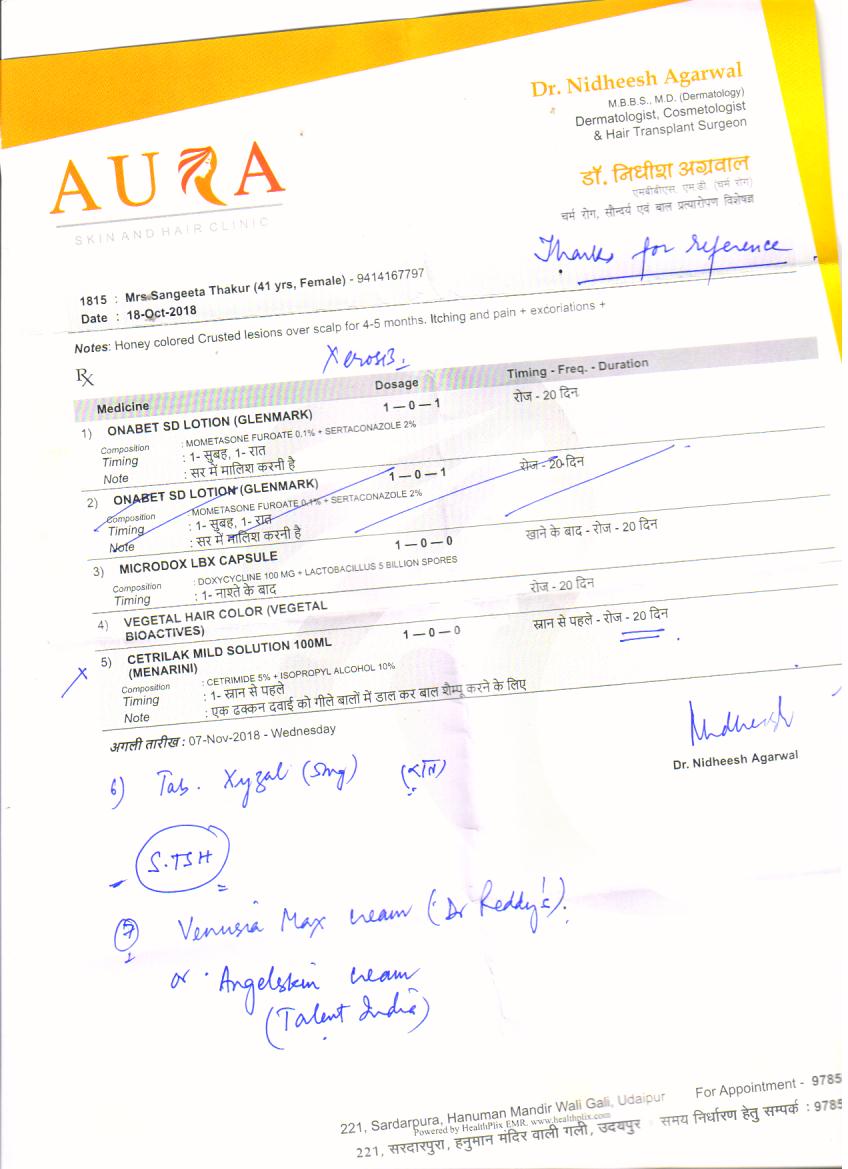 Dr. Nidheesh Agarwal
M.B.B.S., M.D. (Dermatology)
Dermatologist, Cosmetologist
& Hair Transplant Surgeon
AURA
SKIN AND HAIR CLINIC
डॉ. निधीश अग्रवाल
एमबीबीएस, एम.डी. (चर्म रोग)
चर्म रोग, सौन्दर्य एवं बाल प्रत्यारोपण विशेषज्ञ
Thanks for reference
1815 : Mrs Sangeeta Thakur (41 yrs, Female) - 9414167797
Date : 18-Oct-2018
Notes: Honey colored Crusted lesions over scalp for 4-5 months. Itching and pain + excoriations +
Xerosis.
Rx
Medicine Dosage Timing - Freq. - Duration
1) ONABET SD LOTION (GLENMARK) 1 — 0 — 1 रोज - 20 दिन
Composition : MOMETASONE FUROATE 0.1% + SERTACONAZOLE 2%
Timing : 1- सुबह, 1- रात
Note : सर में मालिश करनी है
2) ONABET SD LOTION (GLENMARK) 1 — 0 — 1 रोज - 20 दिन
Composition : MOMETASONE FUROATE 0.1% + SERTACONAZOLE 2%
Timing : 1- सुबह, 1- रात
Note : सर में मालिश करनी है
3) MICRODOX LBX CAPSULE 1 — 0 — 0 खाने के बाद - रोज - 20 दिन
Composition : DOXYCYCLINE 100 MG + LACTOBACILLUS 5 BILLION SPORES
Timing : 1- नाश्ते के बाद
4) VEGETAL HAIR COLOR (VEGETAL रोज - 20 दिन
BIOACTIVES)
5) CETRILAK MILD SOLUTION 100ML 1 — 0 — 0 स्नान से पहले - रोज - 20 दिन
(MENARINI)
Composition : CETRIMIDE 5% + ISOPROPYL ALCOHOL 10%
Timing : 1- स्नान से पहले
Note : एक ढक्कन दवाई को गीले बालों में डाल कर बाल शैम्पू करने के लिए
अगली तारीख : 07-Nov-2018 - Wednesday
Nidheesh
Dr. Nidheesh Agarwal
6) Tab. Xyzal (5mg) (रात)
S.TSH
7 Venusia Max cream (Dr Reddy's).
or Angelskin cream
(Talent India)
221, Sardarpura, Hanuman Mandir Wali Gali, Udaipur For Appointment - 9785
Powered by HealthPlix EMR. www.healthplix.com
221, सरदारपुरा, हनुमान मंदिर वाली गली, उदयपुर समय निर्धारण हेतु सम्पर्क : 9785